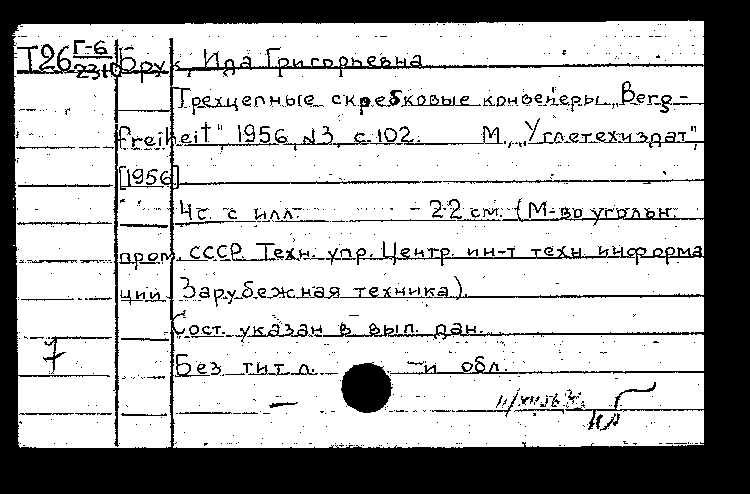 Т26 Г-6
2310
Брук, Ида Григорьевна
Трехцепные скребковые конвейеры „Berg-
freiheit", 1956, №3, с. 102. М., „Углетехиздат",
[1956]
4 с. с илл. - 22 см. (М-во угольн.
пром. СССР. Техн. упр. Центр. ин-т техн. информа
ции. Зарубежная техника).
Сост. указан в вып. дан.
7
Без тит. л. и обл.